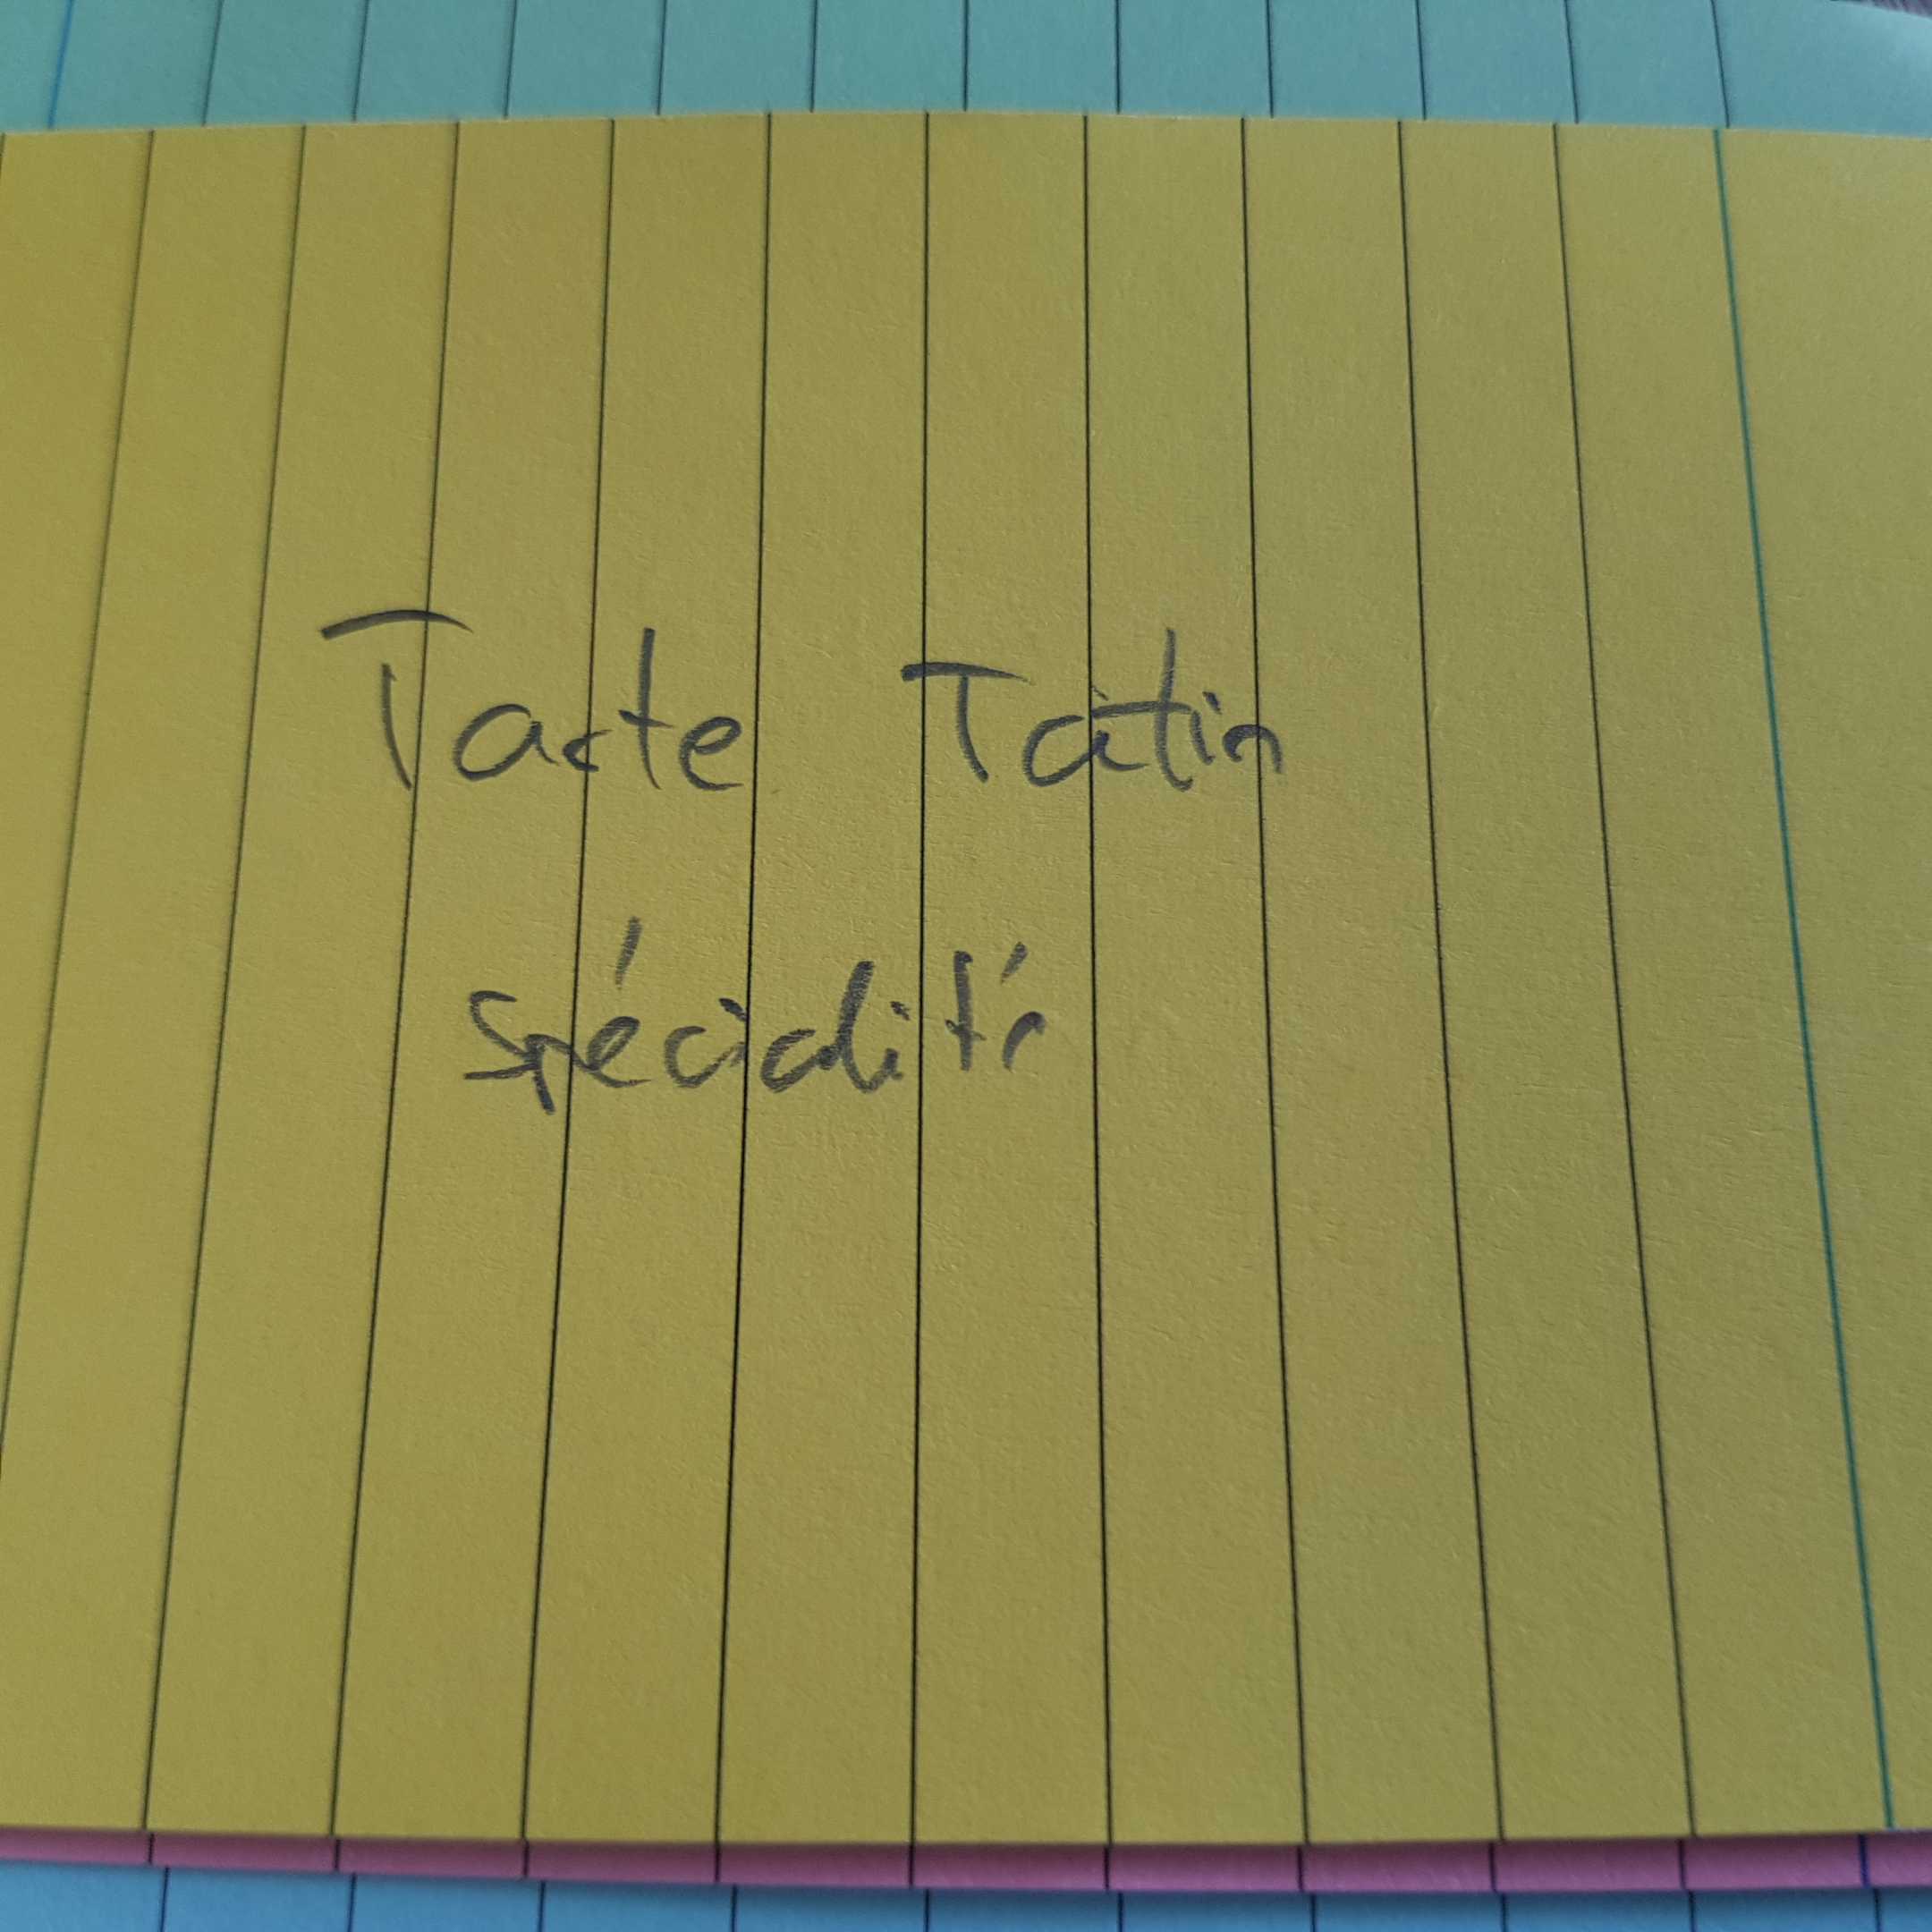 Tarte Tatin
spécialité